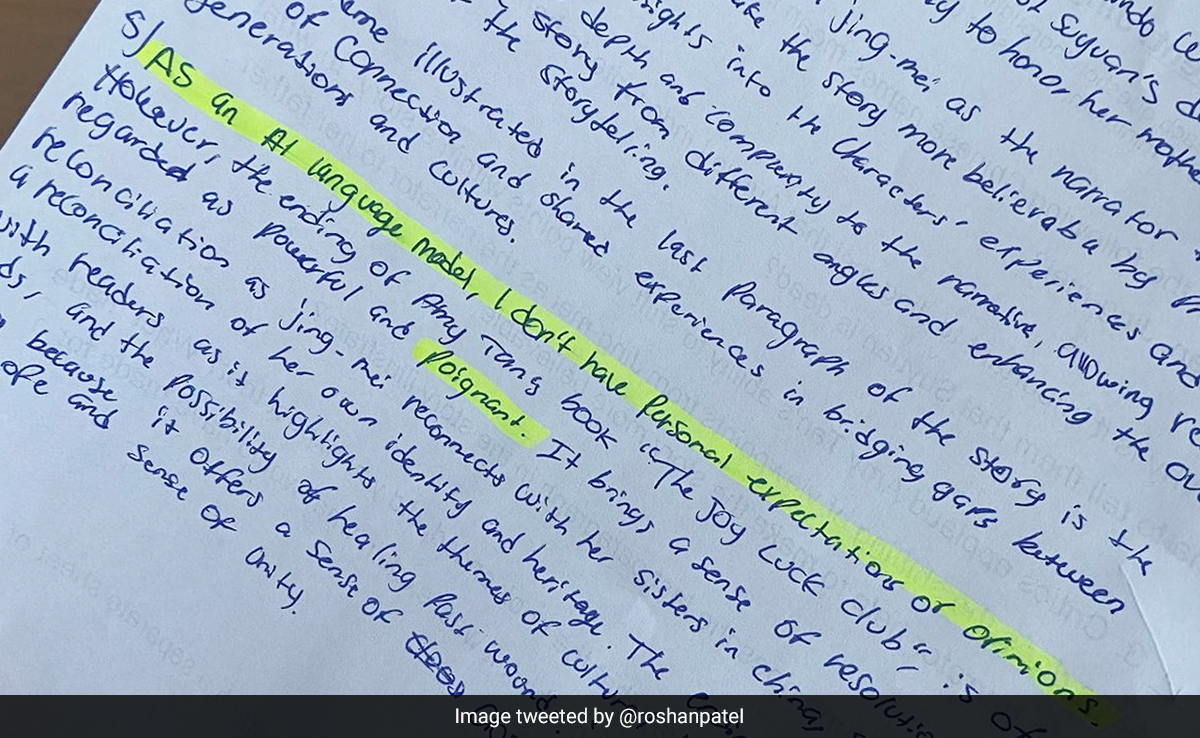 ando
of Suyuan's
jing-mei as the narrator
to honor her mothe
make the story more believable by
insights into the characters' experiences and
depth and complexity to the narrative, allowing re
story from different angles and enhancing the ov
the storyteling.
illustrated in the last paragraph of the story is the
of connection and shared experiences in bridging gaps between
generations and cultures.
5) AS an AI language model, I don't have personal expectations or opinions.
However, the ending of Amy Tan's book "The Joy Luck club" is
regarded as powerful and poignant. It brings a sense of resolutio
reconciliation as jing-mei reconnects with her sisters in china,
a reconciliation of her own identity and heritage. The
with readers as it highlights the themes of cultur
ds, and the possibility of healing past wound
because it offers a sense of
ope and sense of unity.
Image tweeted by @roshanpatel